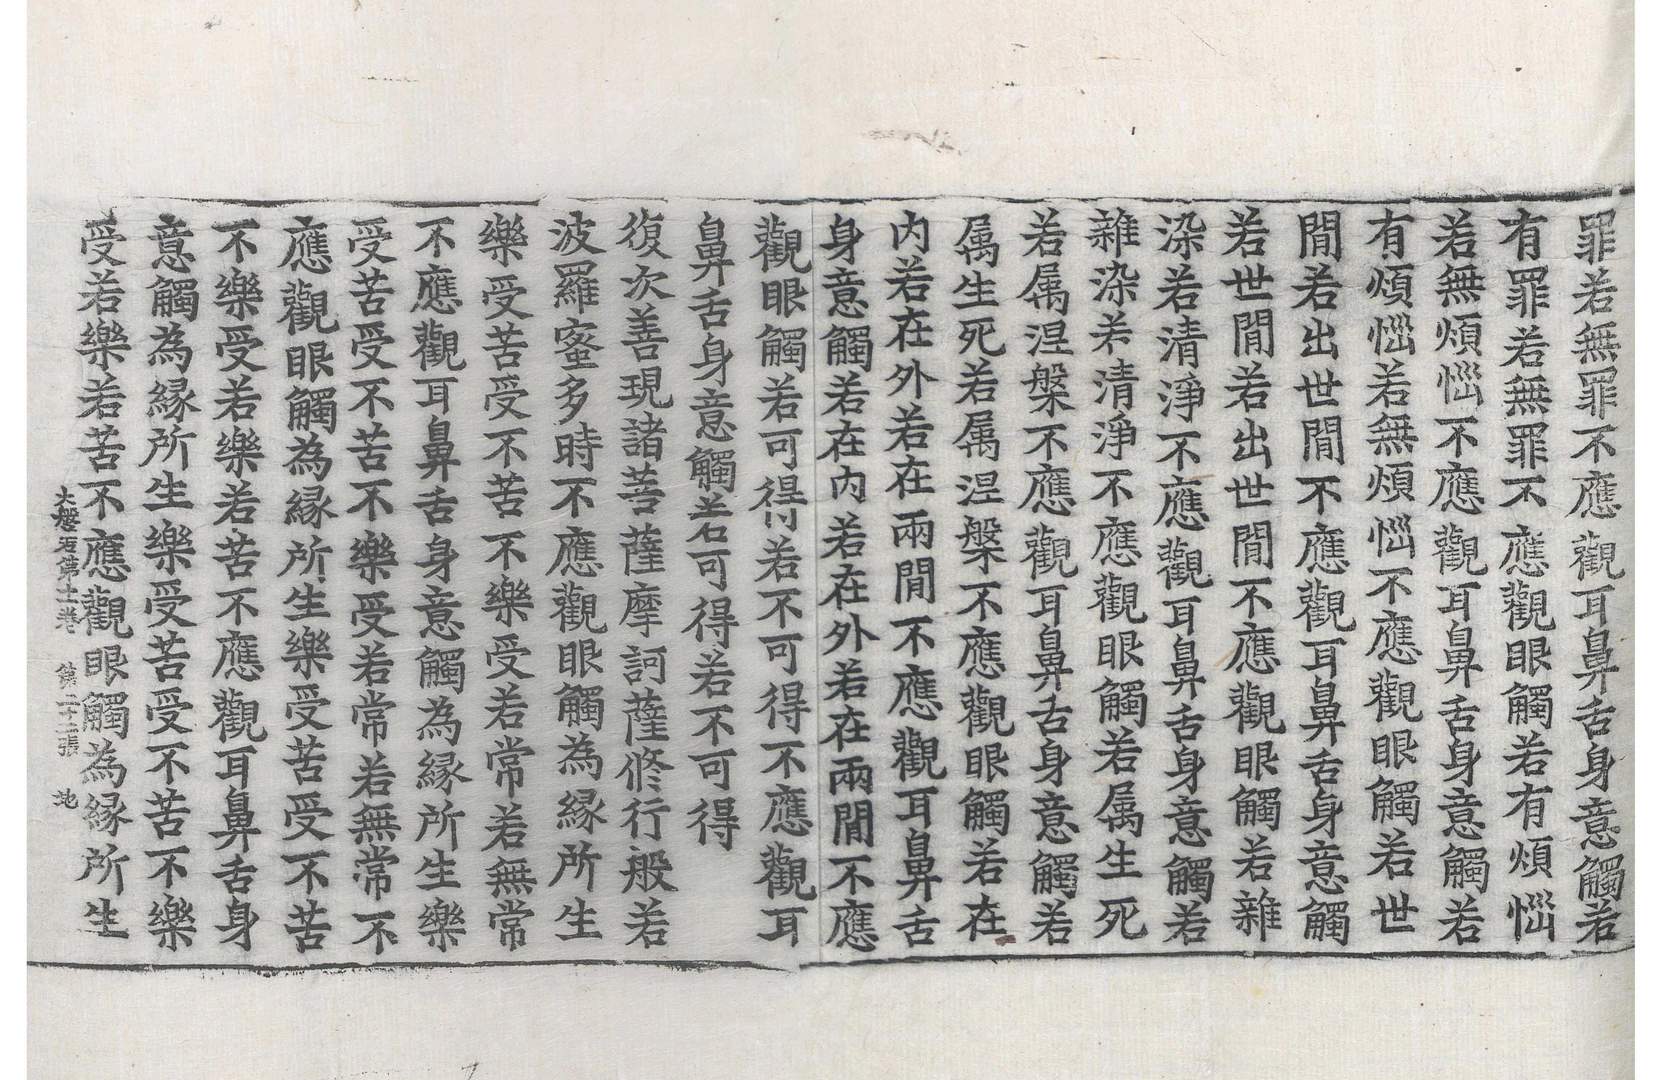 罪若無罪不應觀耳鼻舌身意觸若
有罪若無罪不應觀眼觸若有煩惱
若無煩惱不應觀耳鼻舌身意觸若
有煩惱若無煩惱不應觀眼觸若世
閒若出世閒不應觀耳鼻舌身意觸
若世閒若出世閒不應觀眼觸若雜
染若清淨不應觀耳鼻舌身意觸若
雜染若清淨不應觀眼觸若属生死
若属涅槃不應觀耳鼻舌身意觸若
属生死若属涅槃不應觀眼觸若在
内若在外若在兩閒不應觀耳鼻舌
身意觸若在内若在外若在兩閒不應
觀眼觸若可得若不可得不應觀耳
鼻舌身意觸若可得若不可得
復次善現諸菩薩摩訶薩修行般若
波羅蜜多時不應觀眼觸為縁所生
樂受苦受不苦不樂受若常若無常
不應觀耳鼻舌身意觸為縁所生樂
受苦受不苦不樂受若常若無常不
應觀眼觸為縁所生樂受苦受不苦
不樂受若樂若苦不應觀耳鼻舌身
意觸為縁所生樂受苦受不苦不樂
受若樂若苦不應觀眼觸為縁所生
大般若第十一卷 第二十二張 地